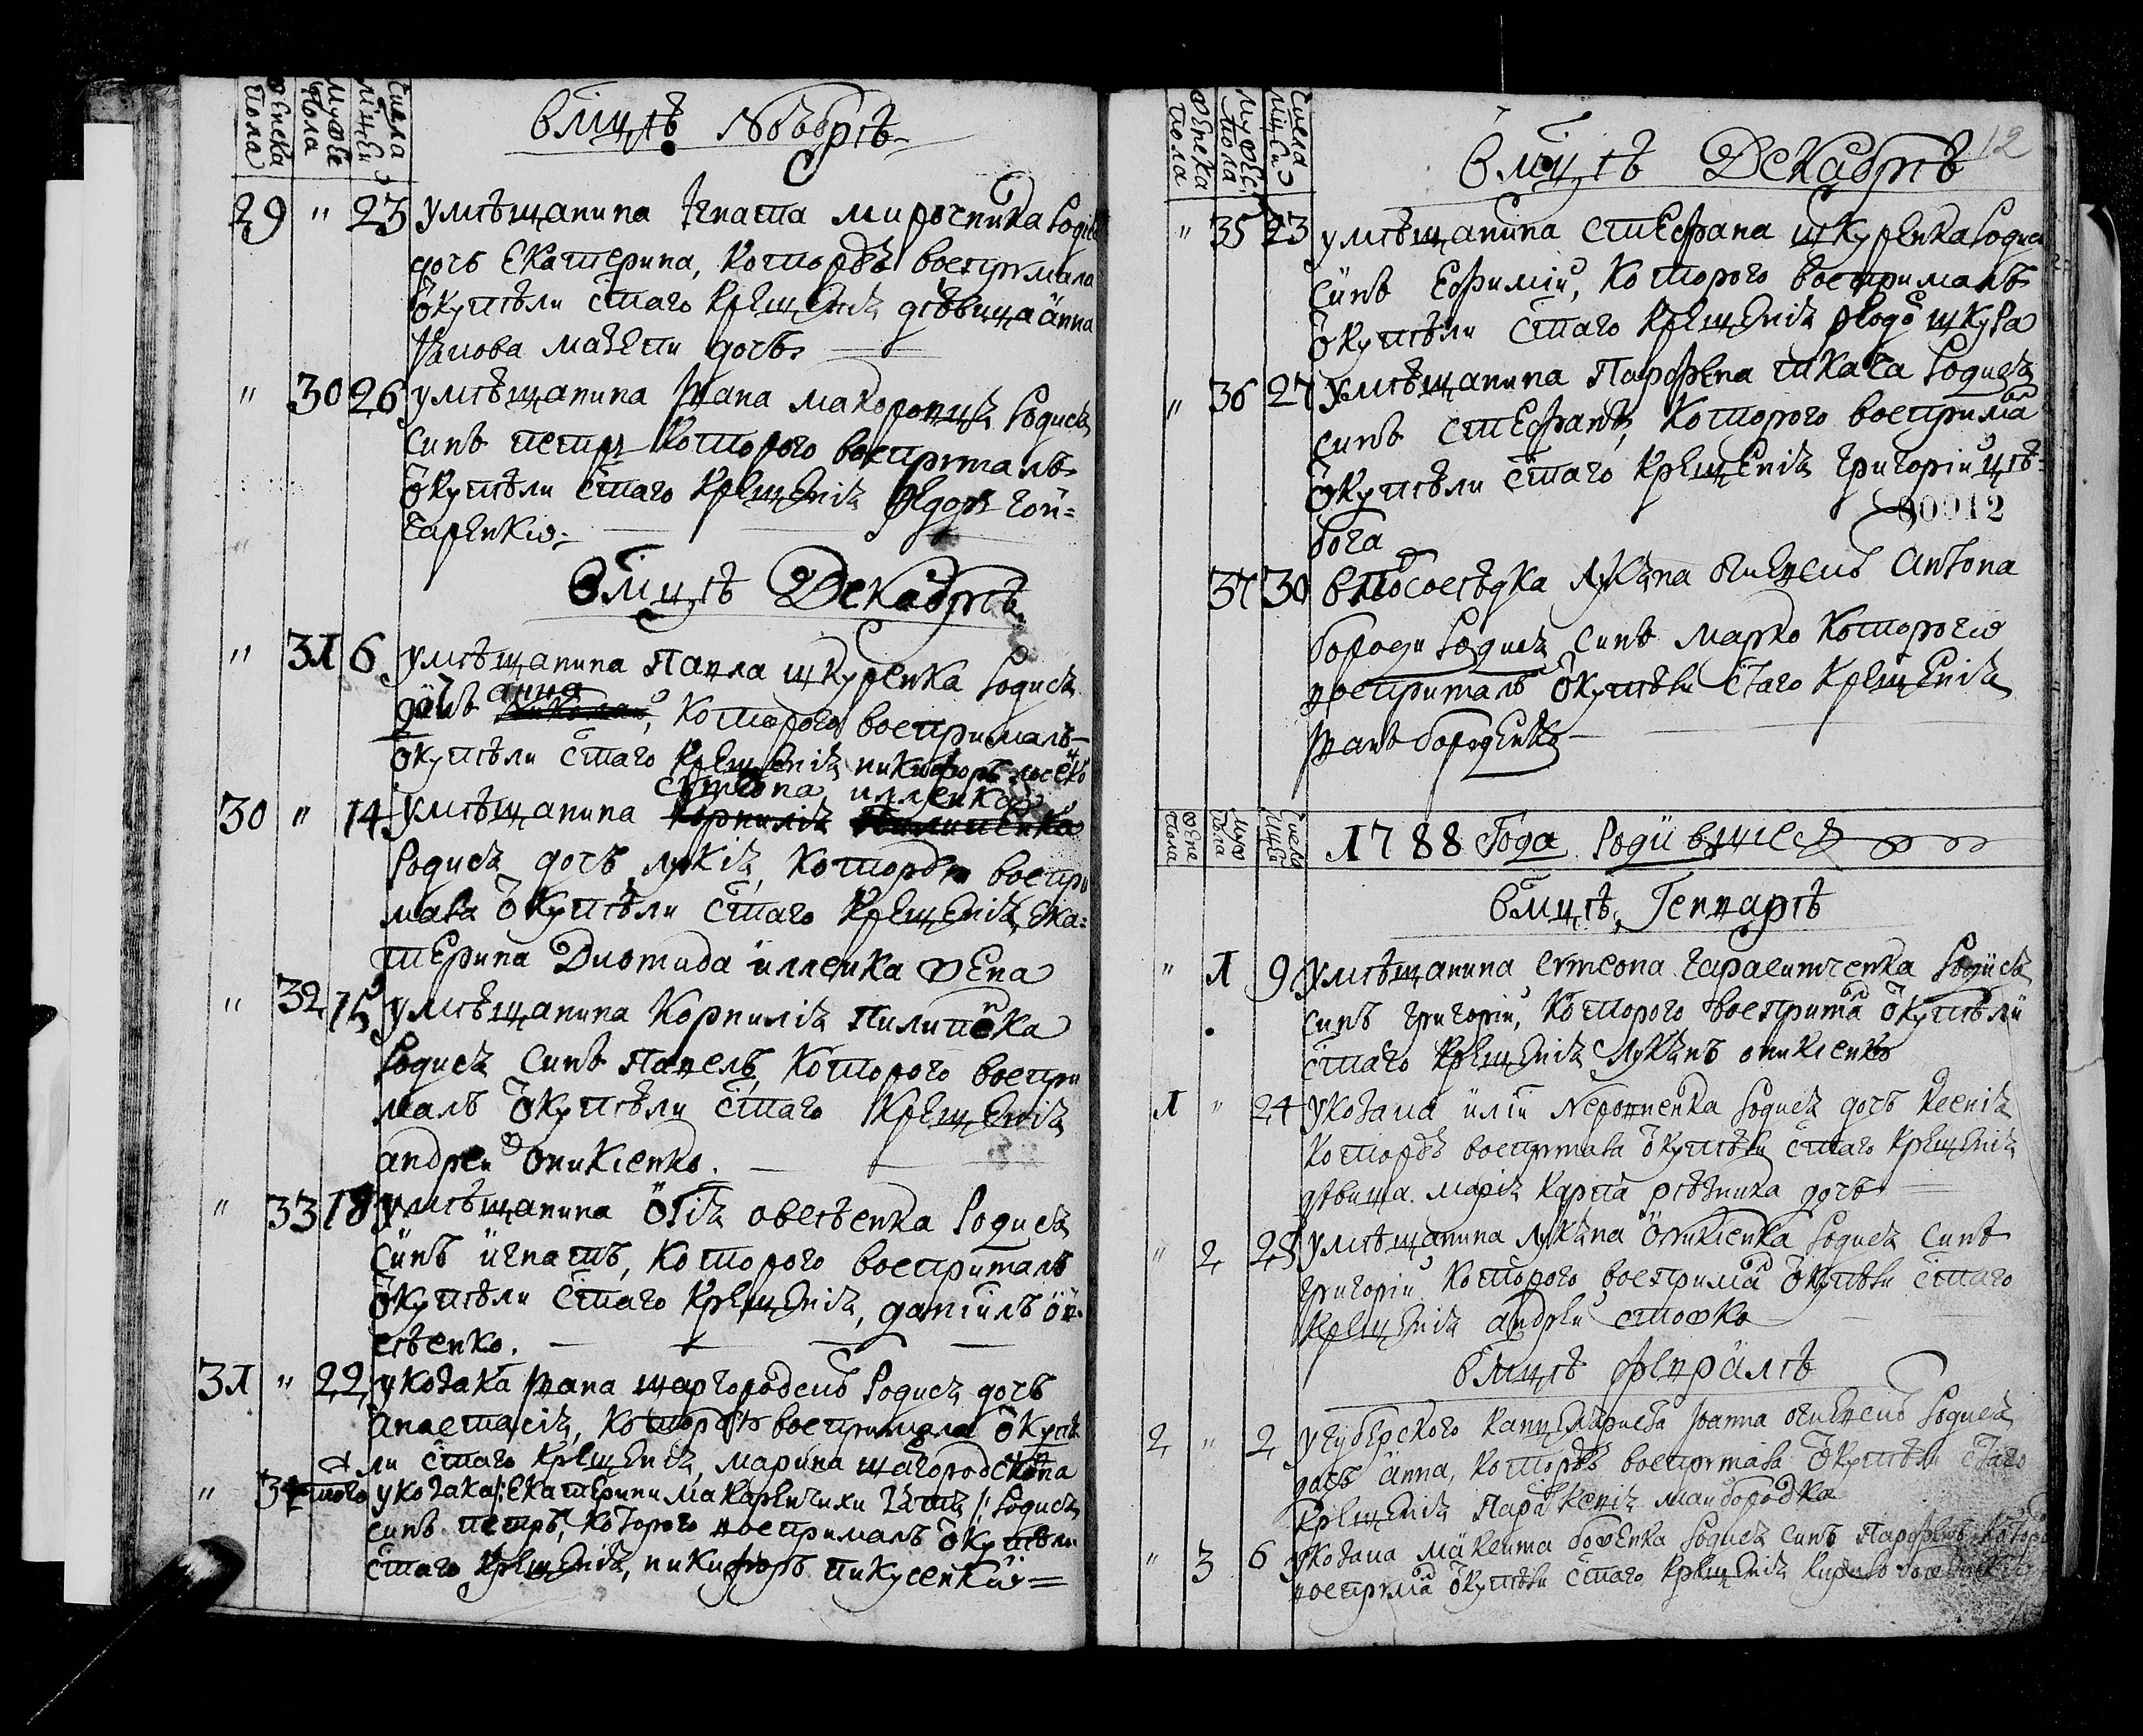 женска пола
мужеска пола
числа мцей
в мцѣ ноябрѣ
29 " 23 у мѣщанина Игната мирочника родис
дочъ Екатерина, которую воспримала
ѿ купѣли стаго крещенія дѣвица анна
мазепи дочъ
" 30 26 у мѣщанина Ивана родися
синъ петръ которого воспрималъ
ѿ купѣли стаго крещенія Федоръ гон=
чаренко
в мцѣ Декабрѣ
" 31 6 у мѣщанина Павла шкуренка родися
анна
которого воспрималъ
ѿ купѣли стаго крещенія никифоръ
сѵмеона илленка
30 " 14 у мѣщанина Корнилія Пилипенка
родися дочъ лукія, которую воспри
мала ѿ купѣли стаго крещенія Ека=
терина Диомида илленка жена
" 32 15 у мѣщанина Корнилія Пилипенка
родися синъ Павелъ, которого воспри
малъ ѿ купѣли стаго крещенія
андрей Оникіенко.
" 33 18 у мѣщанина овсѣенка родися
синъ игнатъ, которого воспрималъ
ѿ купѣли стаго крещенія, даніилъ ов=
сѣенко.
31 " 22 у козака Ивана родися дочъ
анастасія, которую воспримала ѿ купѣ
ли стаго крещенія, марина
" 34 того у козака /: Екатерини макаренчихи зятя :/ родися
синъ петръ, которого воспрималъ ѿ купѣли
стаго крещенія, никифоръ
женска пола
мужеска пола
числа мцей
в мцѣ Декабрѣ 12
" 35 23 у мѣщанина стефана шкуренка родися
синъ Ефимій, которого воспрималъ
ѿ купѣли стаго крещенія шкура
" 36 27 у мѣщанина Парфена ткача родися
синъ стефанъ, которого воспримал
ѿ купѣли стаго крещенія григорій
00012
бога
37 30 Лукяна антона
бороди родися синъ марко которого
воспрималъ ѿ купѣли стаго крещенія
Иванъ бороденко
1788 Года Родившися
в мцѣ Геннарѣ
" 1 9 у мѣщанина сѵмеона герасимченка родися
синъ григорій, которого воспримал ѿ купѣли
стаго крещенія Лукянъ оникіенко
1 " 24 у козака иліи родися дочъ ксенія
которую воспримала ѿ купѣли стаго крещенія
дѣвица марія карпа рѣзника дочъ
" 2 28 у мѣщанина Лукяна Оникіенка родися синъ
григорій которого воспримал ѿ купѣли стаго
крещенія андрей стожко
в мцѣ февралѣ
2 " 2 у губерского канцеляриста Іоанна родися
дочъ анна, которую воспримала ѿ купѣли стаго
крещенія Параскевія майбородка
" 3 6 у козака максима боженка родися синъ Парфенъ, которо
воспримал ѿ купѣли стаго крещенія кирило боженко